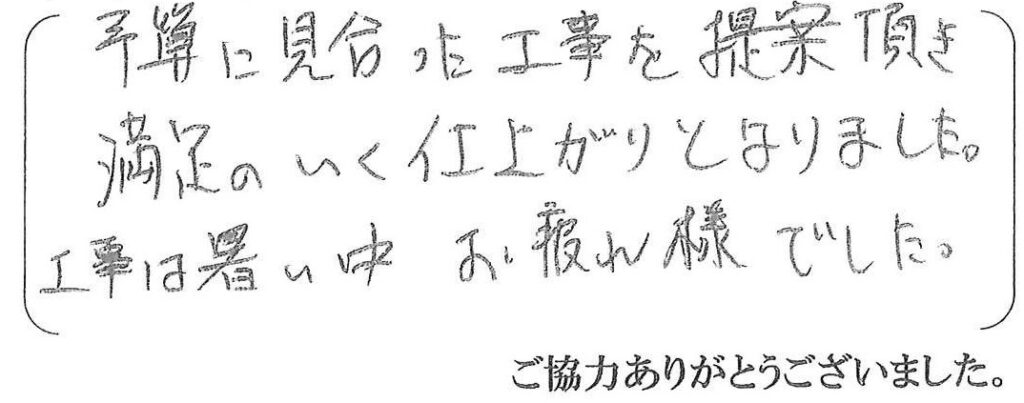 予算に見合った工事を提案頂き
満足のいく仕上がりとなりました。
工事は暑い中 お疲れ様でした。
ご協力ありがとうございました。